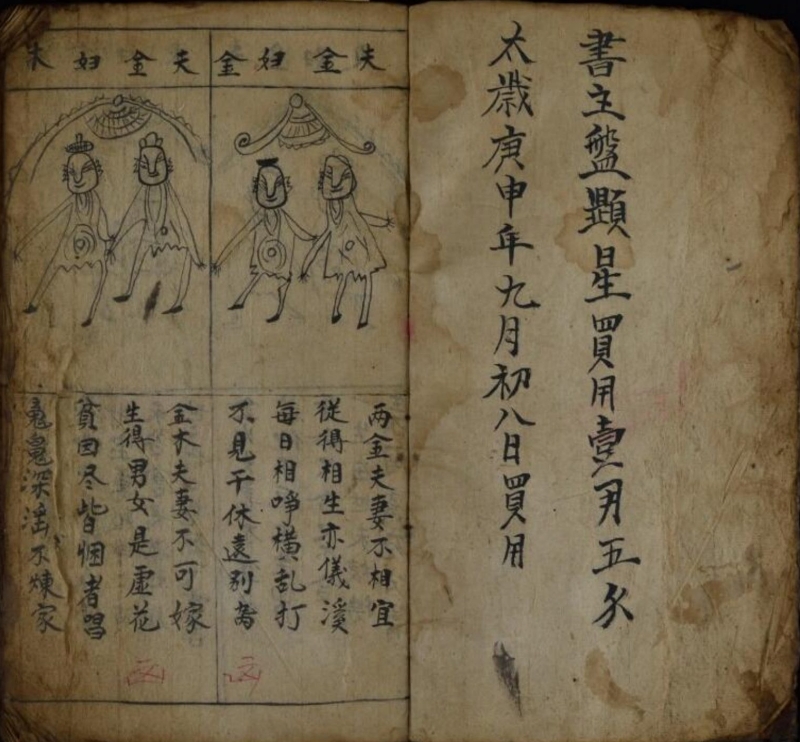 書主盤顕星買用壹月五
太歲庚申年九月初八日買用
夫金妇金
两金夫妻不相宜
從得相生亦儀溪
每日相橫乱打
不見千休遠别
凶
夫金妇木
金木夫妻不可嫁
生得男女是虛花
貧因尽皆者唱
深不煉家
凶